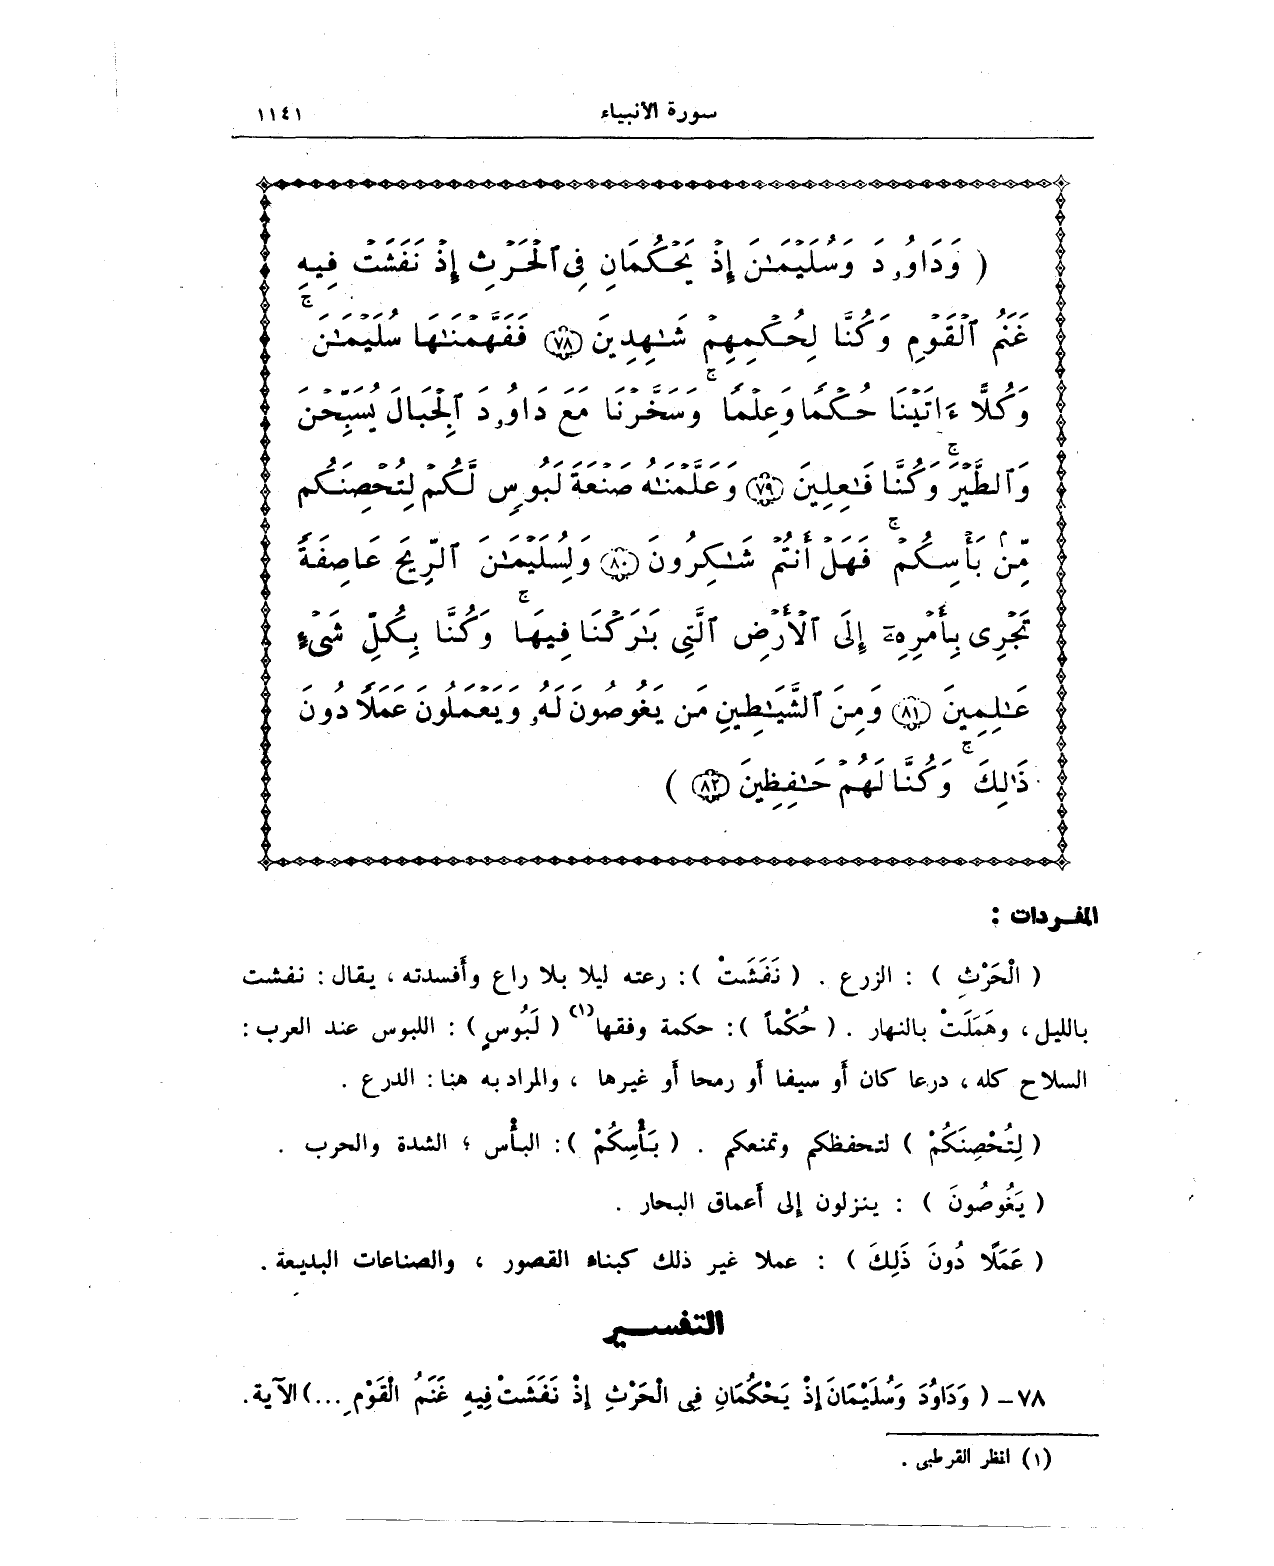 سورة الأنبياء ١١٤١
( وَدَاوُۥدَ وَسُلَيْمَٰنَ إِذْ يَحْكُمَانِ فِى ٱلْحَرْثِ إِذْ نَفَشَتْ فِيهِ
غَنَمُ ٱلْقَوْمِ وَكُنَّا لِحُكْمِهِمْ شَٰهِدِينَ ٧٨ فَفَهَّمْنَٰهَا سُلَيْمَٰنَ ۚ
وَكُلًّا ءَاتَيْنَا حُكْمًا وَعِلْمًا ۚ وَسَخَّرْنَا مَعَ دَاوُۥدَ ٱلْجِبَالَ يُسَبِّحْنَ
وَٱلطَّيْرَ ۚ وَكُنَّا فَٰعِلِينَ ٧٩ وَعَلَّمْنَٰهُ صَنْعَةَ لَبُوسٍ لَّكُمْ لِتُحْصِنَكُم
مِّنۢ بَأْسِكُمْ ۚ فَهَلْ أَنتُمْ شَٰكِرُونَ ٨٠ وَلِسُلَيْمَٰنَ ٱلرِّيحَ عَاصِفَةً
تَجْرِى بِأَمْرِهِۦٓ إِلَى ٱلْأَرْضِ ٱلَّتِى بَٰرَكْنَا فِيهَا ۚ وَكُنَّا بِكُلِّ شَىْءٍ
عَٰلِمِينَ ٨١ وَمِنَ ٱلشَّيَٰطِينِ مَن يَغُوصُونَ لَهُۥ وَيَعْمَلُونَ عَمَلًا دُونَ
ذَٰلِكَ ۚ وَكُنَّا لَهُمْ حَٰفِظِينَ ٨٢ )
المفـردات :
( الْحَرْثِ ) : الزرع . ( نَفَشَتْ ) : رعته ليلا بلا راع وأفسدته ، يقال : نفشت
بالليل ، وهَمَلَتْ بالنهار . ( حُكْماً ) : حكمة وفقها(١) ( لَبُوسٍ ) : اللبوس عند العرب :
السلاح كله ، درعا كان أو سيفا أو رمحا أو غيرها ، والمراد به هنا : الدرع .
( لِتُحْصِنَكُمْ ) لتحفظكم وتمنعكم . ( بَأْسِكُمْ ) : البأس ؛ الشدة والحرب .
( يَغُوصُونَ ) : ينزلون إلى أعماق البحار .
( عَمَلًا دُونَ ذَلِكَ ) : عملا غير ذلك كبناء القصور ، والصناعات البديعة .
التفســير
٧٨ – ( وَدَاوُدَ وَسُلَيْمَانَ إِذْ يَحْكُمَانِ فِى الْحَرْثِ إِذْ نَفَشَتْ فِيهِ غَنَمُ الْقَوْمِ ... ) الآية .
(١) انظر القرطبى .